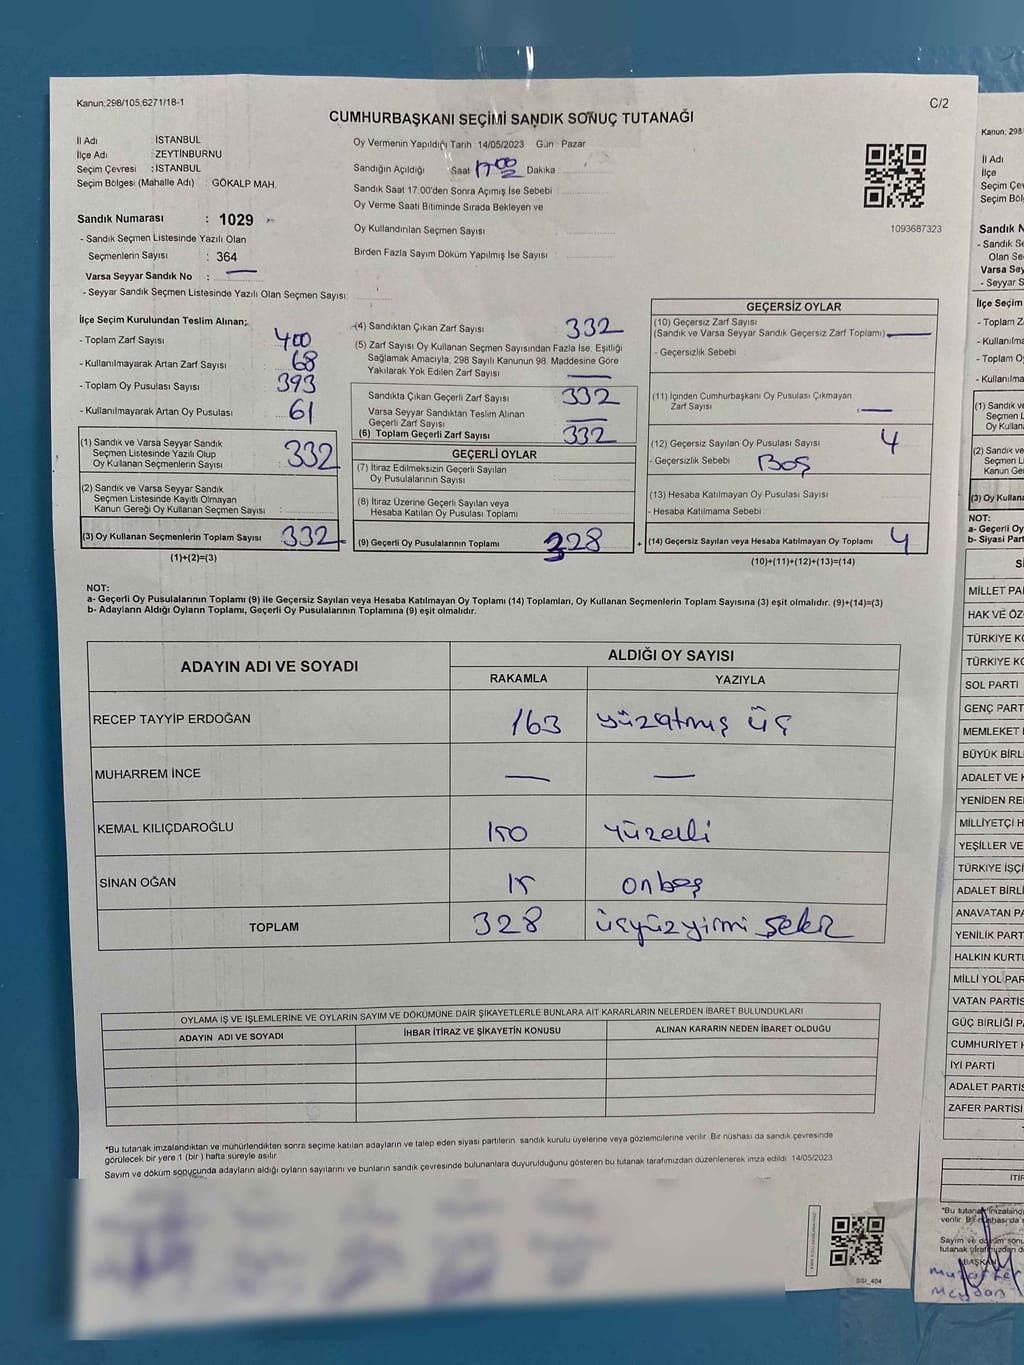 Kanun;298/105;6271/18-1
C/2
CUMHURBAŞKANI SEÇİMİ SANDIK SONUÇ TUTANAĞI
İl Adı : İSTANBUL
İlçe Adı : ZEYTİNBURNU
Seçim Çevresi : İSTANBUL
Seçim Bölgesi (Mahalle Adı) : GÖKALP MAH.
Oy Vermenin Yapıldığı Tarih : 14/05/2023 Gün : Pazar
Sandığın Açıldığı Saat 17:00 Dakika
Sandık Saat 17:00'den Sonra Açımış İse Sebebi :
Oy Verme Saati Bitiminde Sırada Bekleyen ve
Oy Kullandırılan Seçmen Sayısı :
Birden Fazla Sayım Döküm Yapılmış İse Sayısı :
1093687323
Sandık Numarası : 1029
- Sandık Seçmen Listesinde Yazılı Olan
Seçmenlerin Sayısı : 364
Varsa Seyyar Sandık No : —
- Seyyar Sandık Seçmen Listesinde Yazılı Olan Seçmen Sayısı:
İlçe Seçim Kurulundan Teslim Alınan;
- Toplam Zarf Sayısı : 400
- Kullanılmayarak Artan Zarf Sayısı : 68
- Toplam Oy Pusulası Sayısı : 393
- Kullanılmayarak Artan Oy Pusulası : 61
(1) Sandık ve Varsa Seyyar Sandık
Seçmen Listesinde Yazılı Olup
Oy Kullanan Seçmenlerin Sayısı : 332
(2) Sandık ve Varsa Seyyar Sandık
Seçmen Listesinde Kayıtlı Olmayan
Kanun Gereği Oy Kullanan Seçmen Sayısı :
(3) Oy Kullanan Seçmenlerin Toplam Sayısı : 332
(1)+(2)=(3)
(4) Sandıktan Çıkan Zarf Sayısı : 332
(5) Zarf Sayısı Oy Kullanan Seçmen Sayısından Fazla İse, Eşitliği
Sağlamak Amacıyla; 298 Sayılı Kanunun 98. Maddesine Göre
Yakılarak Yok Edilen Zarf Sayısı : —
Sandıkta Çıkan Geçerli Zarf Sayısı : 332
Varsa Seyyar Sandıktan Teslim Alınan
Geçerli Zarf Sayısı : —
(6) Toplam Geçerli Zarf Sayısı : 332
GEÇERLİ OYLAR
(7) İtiraz Edilmeksizin Geçerli Sayılan
Oy Pusulalarının Sayısı :
(8) İtiraz Üzerine Geçerli Sayılan veya
Hesaba Katılan Oy Pusulası Toplamı :
(9) Geçerli Oy Pusulalarının Toplamı : 328 +
GEÇERSİZ OYLAR
(10) Geçersiz Zarf Sayısı
(Sandık ve Varsa Seyyar Sandık Geçersiz Zarf Toplamı) : —
- Geçersizlik Sebebi
(11) İçinden Cumhurbaşkanı Oy Pusulası Çıkmayan
Zarf Sayısı : —
(12) Geçersiz Sayılan Oy Pusulası Sayısı : 4
- Geçersizlik Sebebi : Boş
(13) Hesaba Katılmayan Oy Pusulası Sayısı :
- Hesaba Katılmama Sebebi :
(14) Geçersiz Sayılan veya Hesaba Katılmayan Oy Toplamı : 4
(10)+(11)+(12)+(13)=(14)
NOT:
a- Geçerli Oy Pusulalarının Toplamı (9) ile Geçersiz Sayılan veya Hesaba Katılmayan Oy Toplamı (14) Toplamları, Oy Kullanan Seçmenlerin Toplam Sayısına (3) eşit olmalıdır. (9)+(14)=(3)
b- Adayların Aldığı Oyların Toplamı, Geçerli Oy Pusulalarının Toplamına (9) eşit olmalıdır.
ADAYIN ADI VE SOYADI ALDIĞI OY SAYISI
RAKAMLA YAZIYLA
RECEP TAYYİP ERDOĞAN 163 yüzatmış üç
MUHARREM İNCE — —
KEMAL KILIÇDAROĞLU 150 yüzelli
SİNAN OĞAN 15 onbeş
TOPLAM 328 üçyüzyirmi sekiz
OYLAMA İŞ VE İŞLEMLERİNE VE OYLARIN SAYIM VE DÖKÜMÜNE DAİR ŞİKAYETLERLE BUNLARA AİT KARARLARIN NELERDEN İBARET BULUNDUKLARI
ADAYIN ADI VE SOYADI İHBAR İTİRAZ VE ŞİKAYETİN KONUSU ALINAN KARARIN NEDEN İBARET OLDUĞU
*Bu tutanak imzalandıktan ve mühürlendikten sonra seçime katılan adayların ve talep eden siyasi partilerin sandık kurulu üyelerine veya gözlemcilerine verilir. Bir nüshası da sandık çevresinde
görülecek bir yere 1 (bir) hafta süreyle asılır.
Sayım ve döküm sonucunda adayların aldığı oyların sayılarını ve bunların sandık çevresinde bulunanlara duyurulduğunu gösteren bu tutanak tarafımızdan düzenlenerek imza edildi. 14/05/2023
SSI_404
Kanun; 298
İl Adı
İlçe
Seçim Çev
Seçim Böl
Sandık N
- Sandık Se
Olan Se
Varsa Sey
- Seyyar S
İlçe Seçim
- Toplam Z
- Kullanılma
- Toplam O
- Kullanılma
(1) Sandık v
Seçmen L
Oy Kullan
(2) Sandık ve
Seçmen Li
Kanun Ger
(3) Oy Kullana
NOT:
a- Geçerli Oy
b- Siyasi Part
Sİ
MİLLET PA
HAK VE ÖZ
TÜRKİYE KO
TÜRKİYE KO
SOL PARTİ
GENÇ PART
MEMLEKET
BÜYÜK BİRL
ADALET VE K
YENİDEN RE
MİLLİYETÇİ H
YEŞİLLER VE
TÜRKİYE İŞÇİ
ADALET BİRLİ
ANAVATAN PA
YENİLİK PART
HALKIN KURTU
MİLLİ YOL PAR
VATAN PARTİS
GÜÇ BİRLİĞİ P
CUMHURİYET H
İYİ PARTİ
ADALET PARTİS
ZAFER PARTİSİ
T
İTİR
*Bu tutanak imzaland
verilir. Bir nüshası da s
Sayım ve döküm sonu
tutanak tarafımızdan d
BAŞKAN